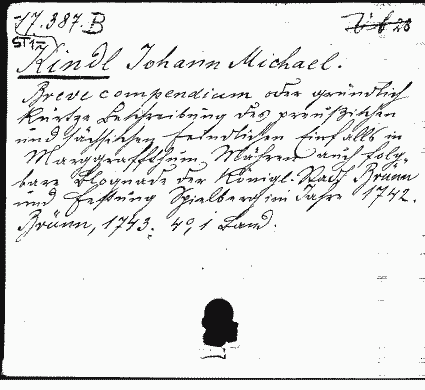 17.387.B
Kindl Johann Michael.
Breve compendium oder gründlich
kurtze Beschreibung des preußischen
und sächsischen feindlichen Einfalls in
Marggraffthum Mähren auch
Bloquade der Königl. Stadt Brünn
und Festung Spielberg im Jahre 1742.
Brünn, 1743. 4°, 1 Band.